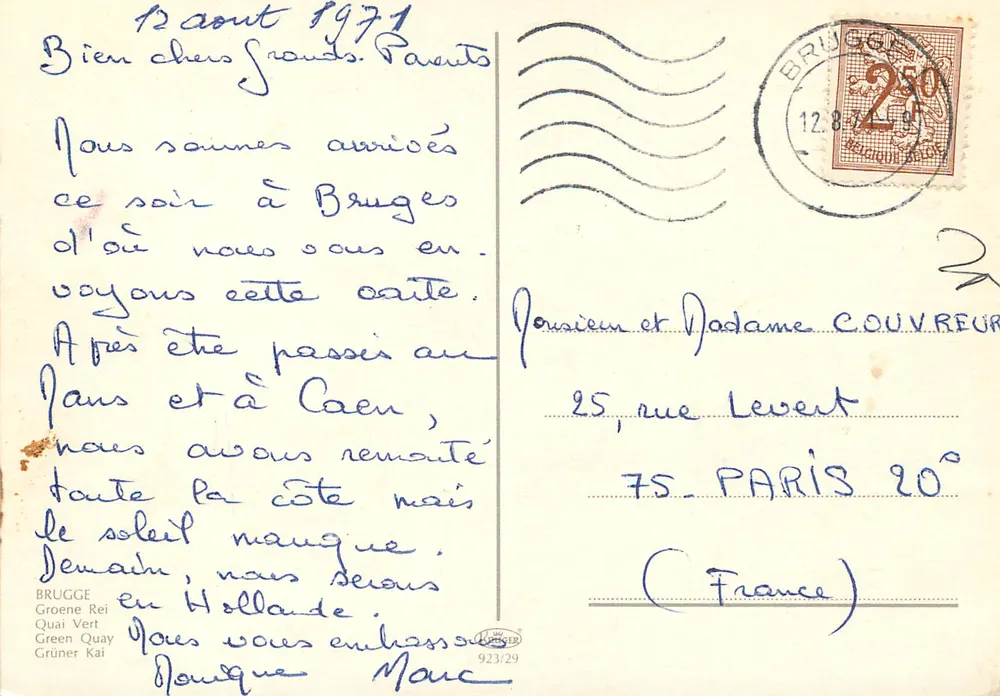 12 aout 1971
Bien chers Grands-Parents
Nous sommes arrivés
ce soir à Bruges
d'où nous vous en-
voyons cette carte.
Après être passés au
Mans et à Caen,
nous avons remonté
toute la côte mais
le soleil manque.
Demain, nous serons
en Hollande.
Nous vous embrassons
Monique Marc
BRUGGE
Groene Rei
Quai Vert
Green Quay
Grüner Kai
KRÜGER
923/29
BRUGGE
12.8.71
2F50
BELGIQUE BELGIË
Monsieur et Madame COUVREUR
25, rue Levert
75 - PARIS 20°
(France)